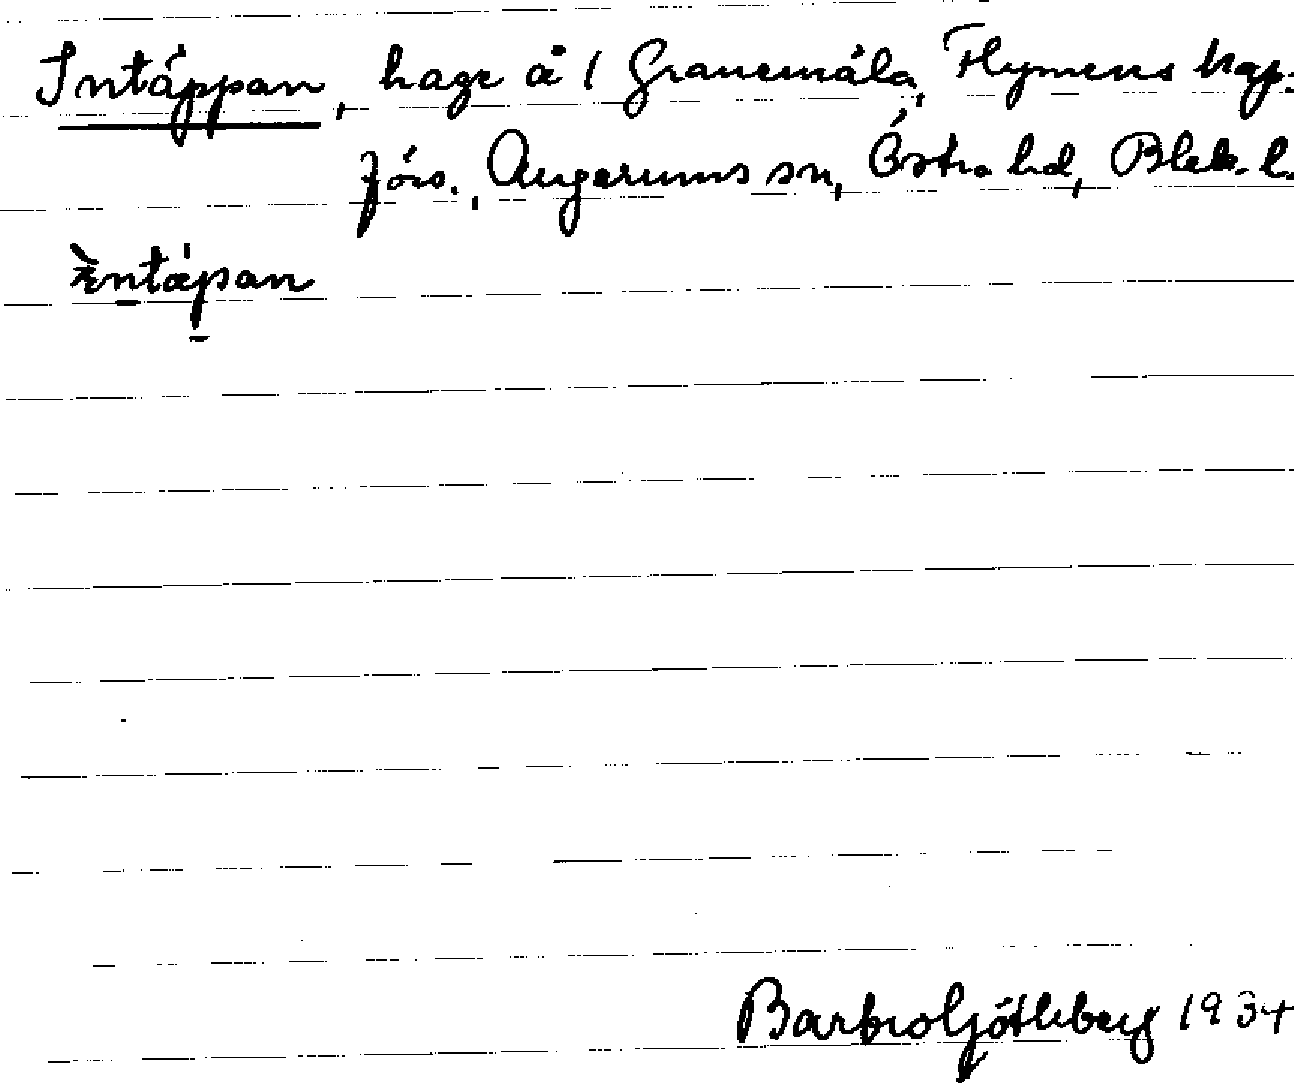 Intäppan, hage å 1 Granemåla, Flymens kap-
förs., Augerums sn, Östra hd, Blek. l.
ìntápan
Barbro Götleborg 1934